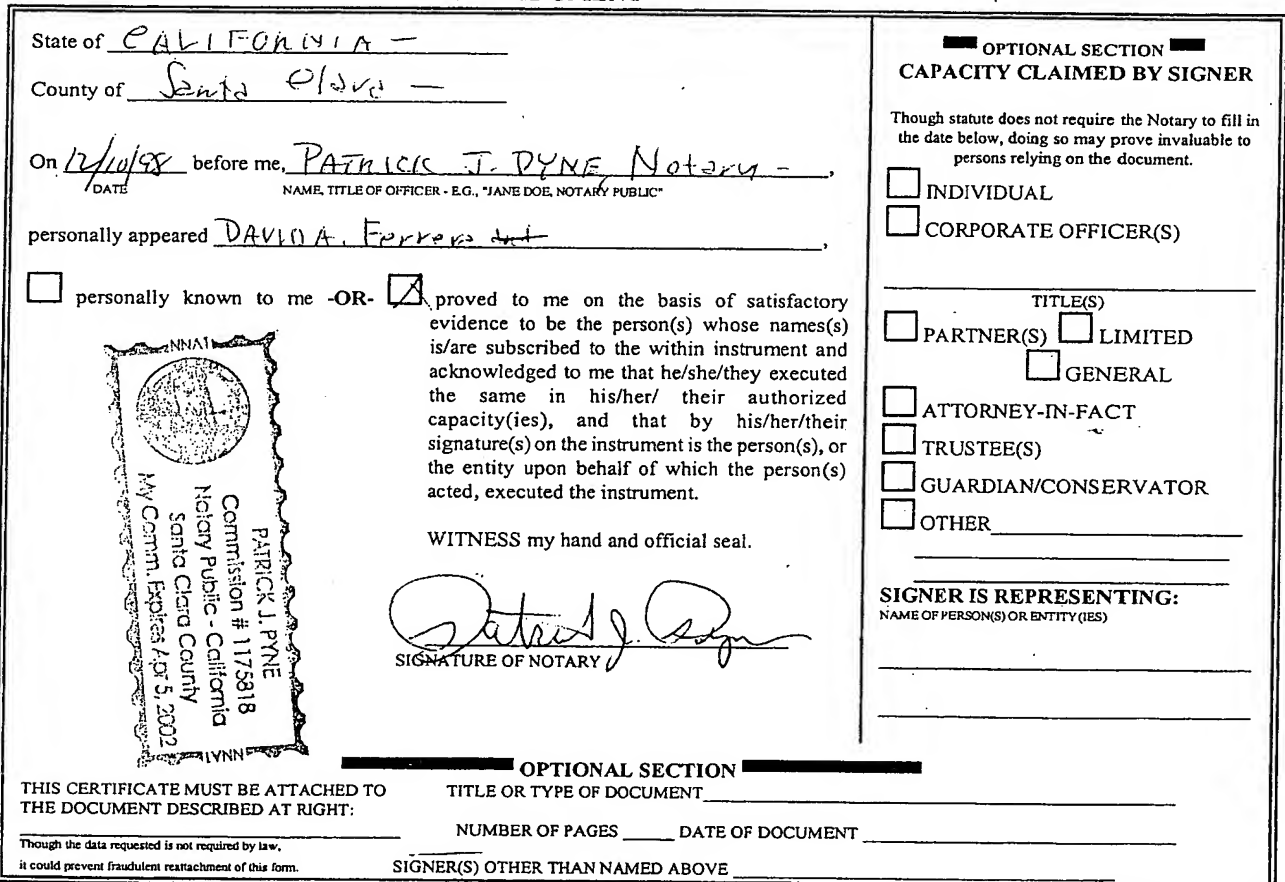 State of CALIFORNIA —
County of Santa Clara —
On 12/10/98 before me, PATRICK J. PYNE, Notary —,
DATE NAME, TITLE OF OFFICER - E.G., "JANE DOE, NOTARY PUBLIC"
personally appeared DAVID A. Ferrera,
personally known to me -OR- proved to me on the basis of satisfactory
evidence to be the person(s) whose names(s)
is/are subscribed to the within instrument and
acknowledged to me that he/she/they executed
the same in his/her/ their authorized
capacity(ies), and that by his/her/their
signature(s) on the instrument is the person(s), or
the entity upon behalf of which the person(s)
acted, executed the instrument.
WITNESS my hand and official seal.
Patrick J. Pyne
SIGNATURE OF NOTARY
NNA1
PATRICK J. PYNE
Commission # 1175818
Notary Public - California
Santa Clara County
My Comm. Expires Apr 5, 2002
NNA1
OPTIONAL SECTION
CAPACITY CLAIMED BY SIGNER
Though statute does not require the Notary to fill in
the date below, doing so may prove invaluable to
persons relying on the document.
INDIVIDUAL
CORPORATE OFFICER(S)
TITLE(S)
PARTNER(S) LIMITED
GENERAL
ATTORNEY-IN-FACT
TRUSTEE(S)
GUARDIAN/CONSERVATOR
OTHER
SIGNER IS REPRESENTING:
NAME OF PERSON(S) OR ENTITY(IES)
OPTIONAL SECTION
THIS CERTIFICATE MUST BE ATTACHED TO
THE DOCUMENT DESCRIBED AT RIGHT:
Though the data requested is not required by law,
it could prevent fraudulent reattachment of this form.
TITLE OR TYPE OF DOCUMENT
NUMBER OF PAGES DATE OF DOCUMENT
SIGNER(S) OTHER THAN NAMED ABOVE